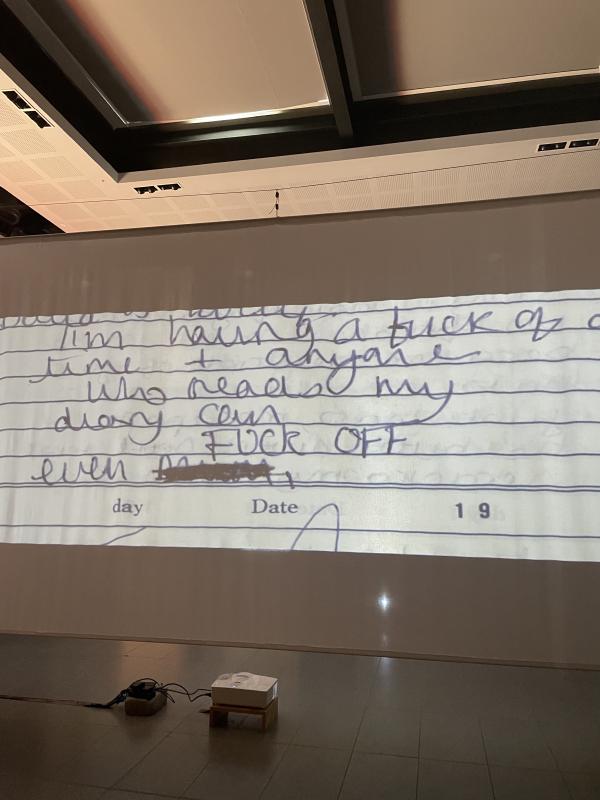 I'm having a fuck of a
time + anyone
who reads my
diary can
FUCK OFF
even
day Date 19